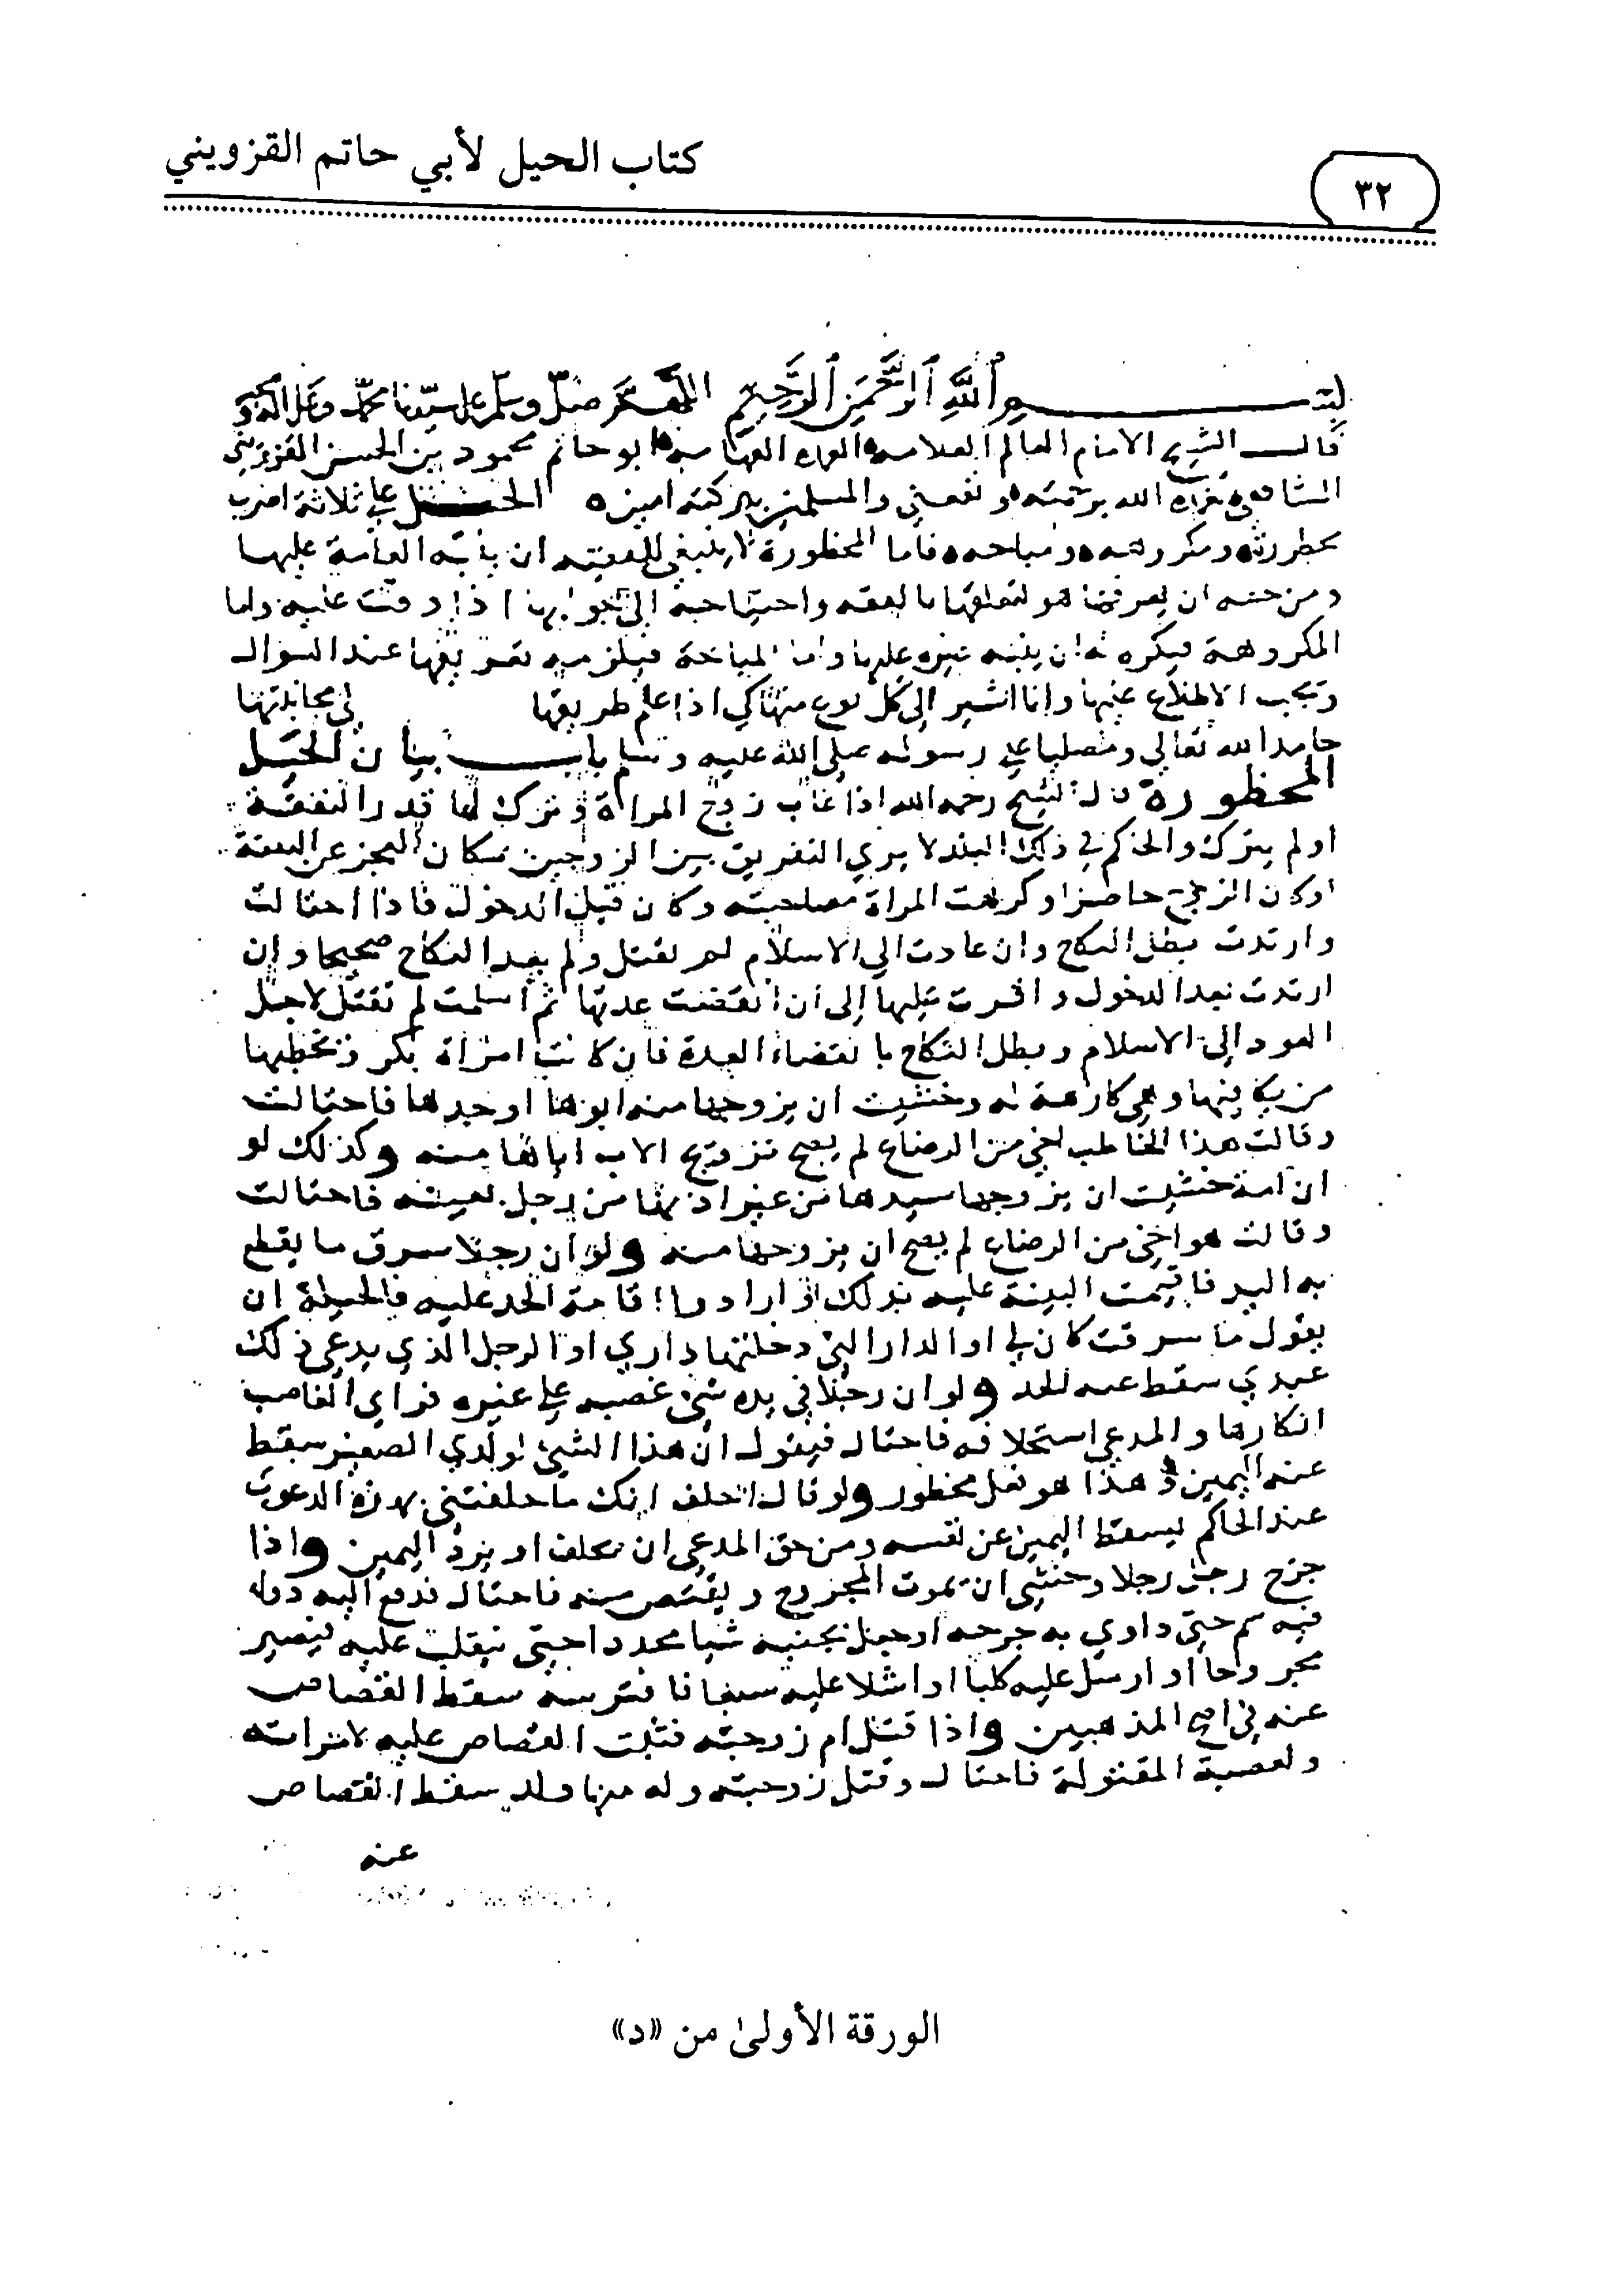 كتاب الحيل لأبي حاتم القزويني
٣٢
بسم الله الرحمن الرحيم اللهم صل وسلم على سيدنا محمد وعلى اله
قال الشيخ الامام العالم العلامه ابو حاتم محمود بن الحسن القزويني
الشافعي الله برحمته ونفعني والمسلمين ببركته امين الحيل على ثلاثة اضرب
محظوره ومكروهه ومباحه فاما المحظورة لا ينبغي للفقيه ان ينبه العامة عليها
ومن حقه ان يعرفها هو لتعلقها بالفقه واحتياجه الى جوابها اذا وقت عليه واما
المكروهة فيكره له ان ينبه غيره عليها واما المباحة فيلزمه تعريفها عند السوال
ويجب الاطلاع عليها وانا اشير الى كل نوع منها كي اذا علم طريقها الى مجانبتها
حامدا لله تعالى ومصليا على رسوله صلى الله عليه وسلم باب بيان الحيل
المحظورة قال الشيخ رحمه الله اذا غاب زوج المراة وترك لها قدر النفقة
او لم يترك والحاكم في ذلك البلد لا يري التفريق بين الزوجين بمكان العجز عن النفقة
او كان الزوج حاضرا وكرهت المراة مصاحبته وكان قبل الدخول فاذا احتالت
وارتدت بطل النكاح وان عادت الى الاسلام لم تقتل ولم يعد النكاح صحيحا وان
ارتدت بعد الدخول واقرت عليها الى ان انقضت عدتها ثم اسلمت لم تقتل لاجل
العود الى الاسلام وبطل النكاح بانقضاء العدة فان كانت امراة بكر فخطبها
من يكافيها وهي كارهة له وخشيت ان يزوجها منه ابوها او جدها فاحتالت
وقالت هذا الخاطب اخي من الرضاع لم يصح تزويج الاب اياها منه وكذلك لو
ان امة خشيت ان يزوجها سيدها من غير اذنها من رجل بعينه فاحتالت
وقالت هو اخي من الرضاع لم يصح ان يزوجها منه ولو ان رجلا سرق ما يقطع
به اليد فاقيمت البينة عليه بذلك وارادوا اقامة الحد عليه فالحيلة ان
يقول ما سرقت كان لي او الدار التي دخلتها داري او الرجل الذي يدعي ذلك
عبدي سقط عنه الحد ولو ان رجلا في يده شي غصبه على غيره فراي الغاصب
انكارها والمدعي استحلافه فاحتال فيقول ان هذا الشي لولدي الصغير سقط
عنه اليمين وهذا هو فعل محظور ولو قال احلف انك ما حلفتني بهذه الدعوي
عند الحاكم ليسقط اليمين عن نفسه ومن حق المدعي ان يحلف او يرد اليمين واذا
جرح رجل رجلا وخشي ان يموت المجروح ويقتص منه فاحتال فدفع اليه دوا
فيه سم حتى داوي به جرحه او جعل بجنبه شيا محددا حتي ينقلب عليه فيصير
مجروحا او ارسل عليه كلبا او اشلا عليه سبعا فافترسه سقط القصاص
عنه في اصح المذهبين واذا قتل ام زوجته فثبت القصاص عليه لامراته
ولعصبة المقتولة فاحتال وقتل زوجته وله منها ولد سقط القصاص
عنه
الورقة الأولىٰ من «د»